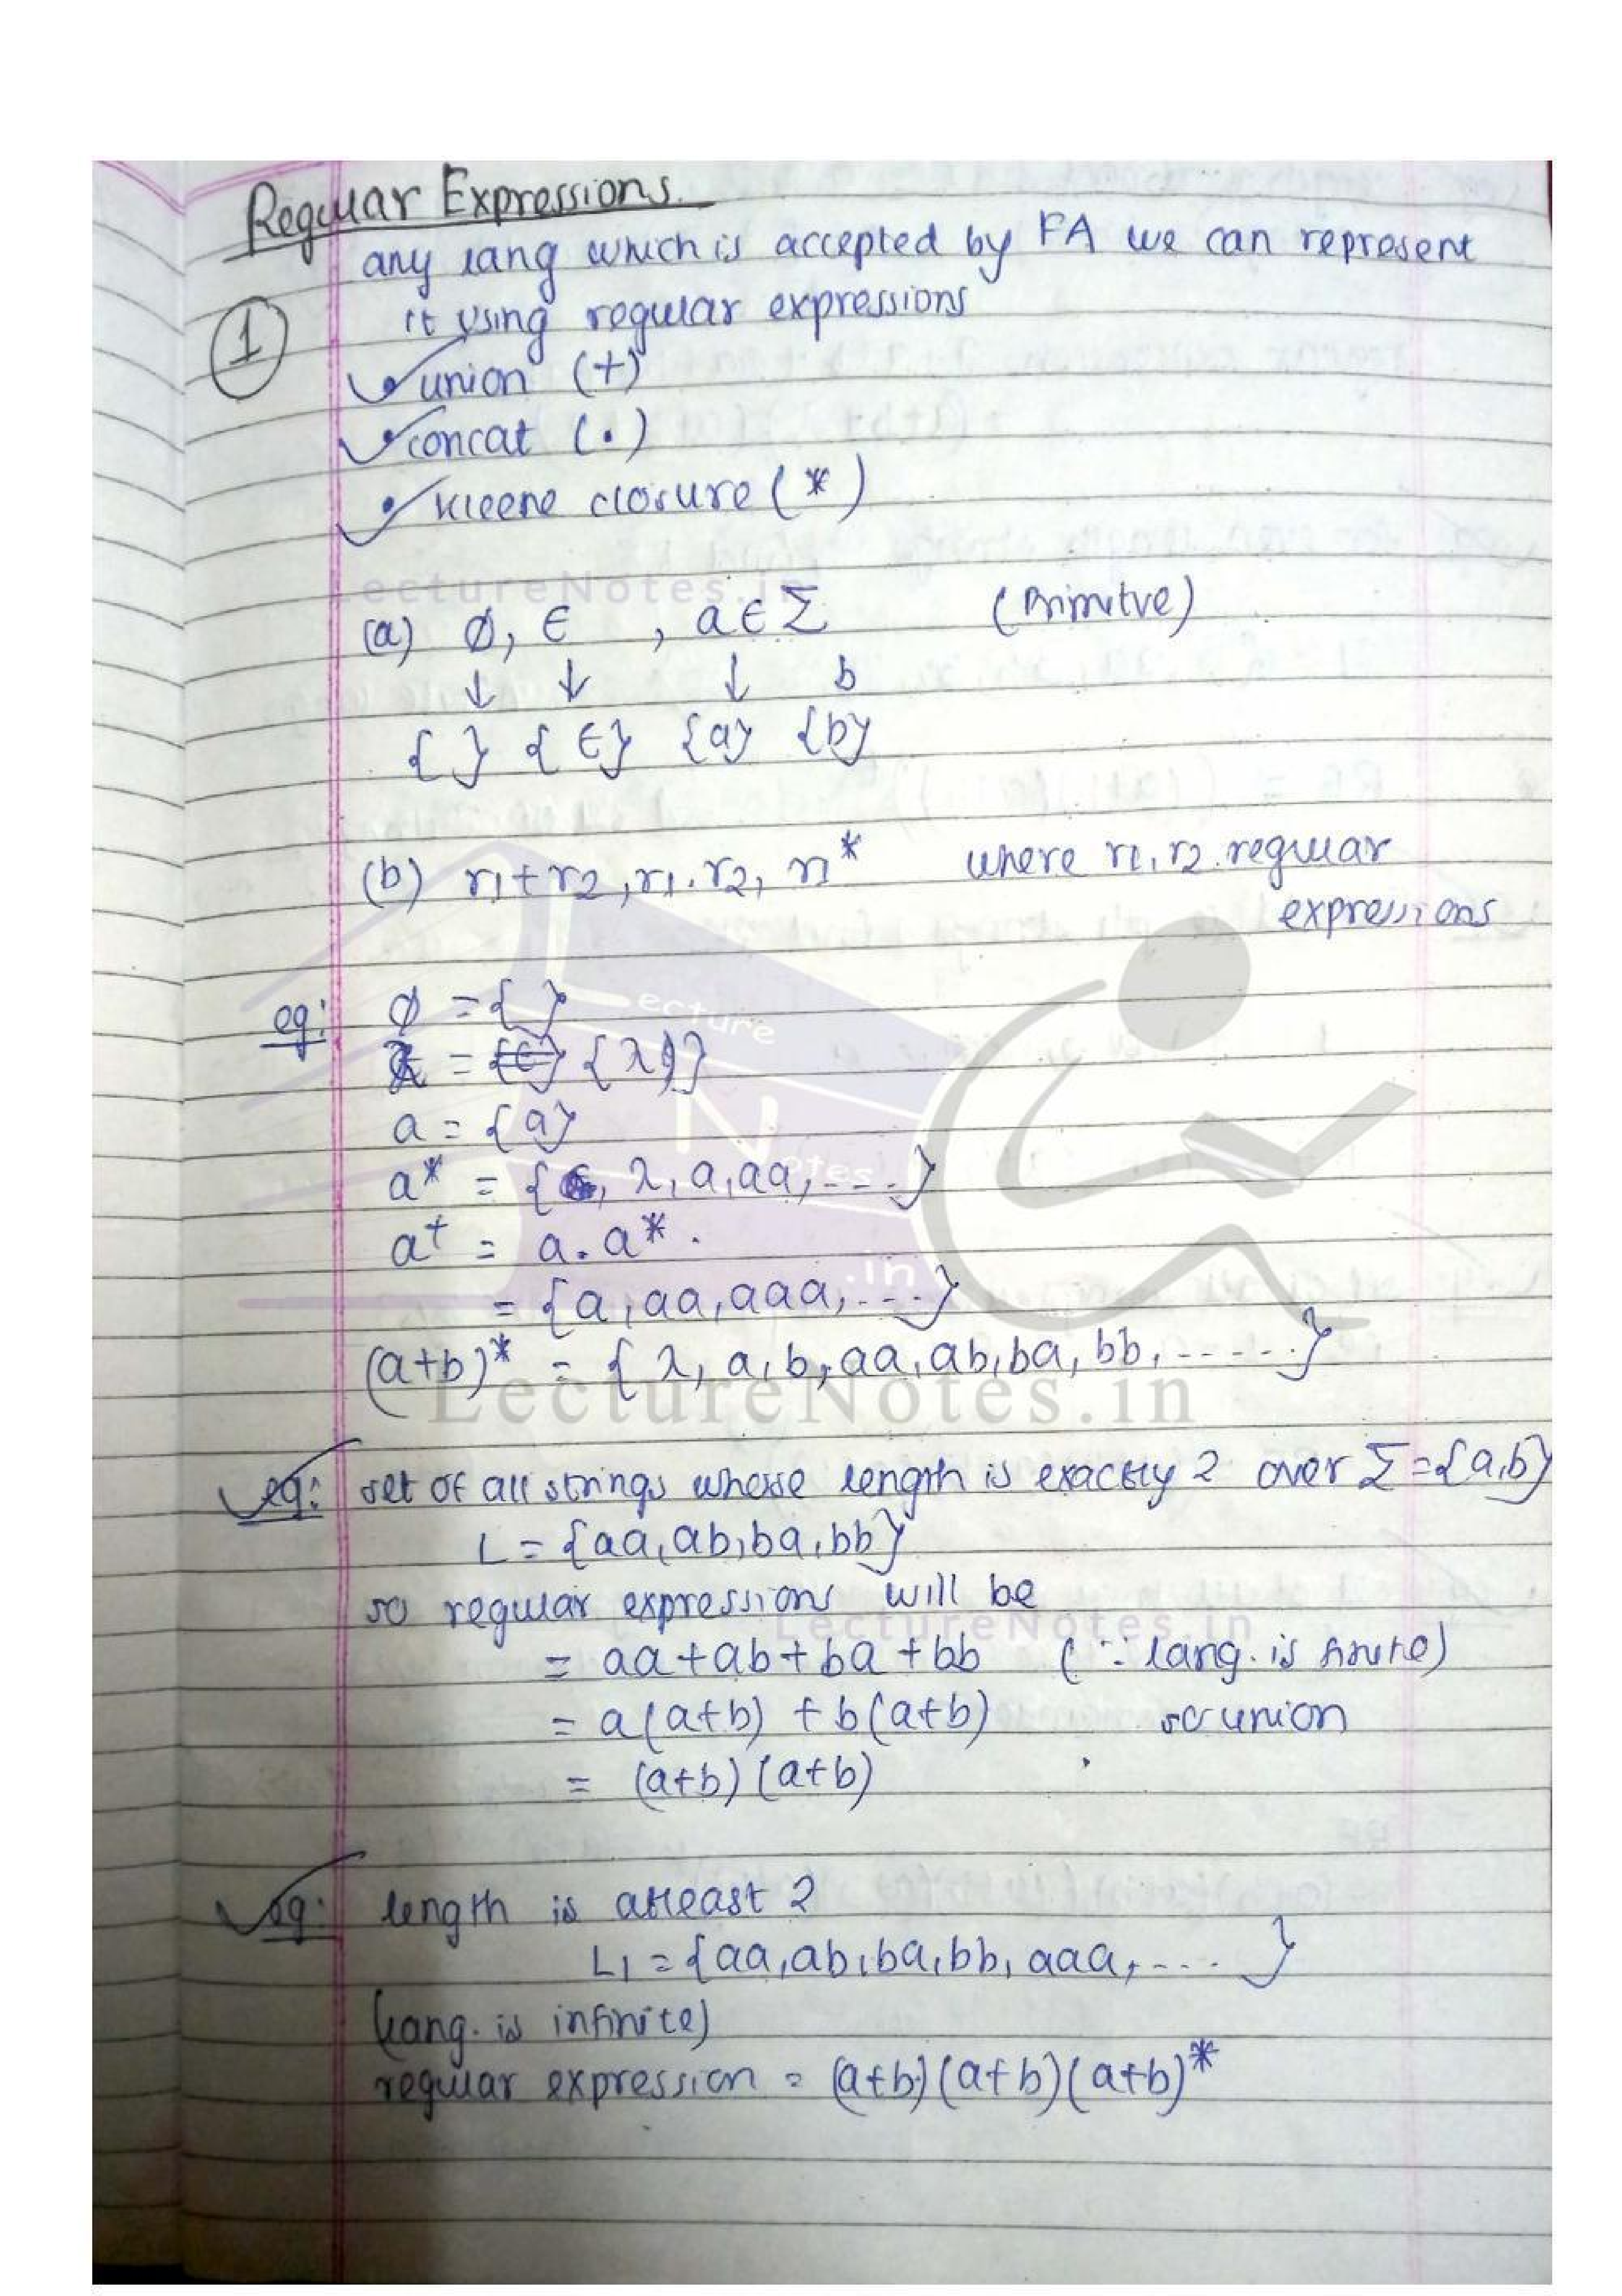 Regular Expressions.
any lang which is accepted by FA we can represent
it using regular expressions
1
• union (+)
• concat (.)
• kleene closure (*)
LectureNotes.in
(a) ∅, ϵ , a ϵ Σ (Primitve)
↓ ↓ ↓ b
{ } {ϵ} {a} {b}
(b) r1+r2, r1.r2, r1* where r1, r2 regular
expressions
eg: ∅ = { }
= {λ}
a = {a}
a* = { λ, a, aa, ---.}
a+ = a.a*.
= {a, aa, aaa, ---}
(a+b)* = { λ, a, b, aa, ab, ba, bb, -----}
Lecture
Notes
.in
LectureNotes.in
eg: set of all strings whose length is exactly 2 over Σ={a,b}
L = {aa, ab, ba, bb}
so regular expressions will be
LectureNotes.in
= aa+ab+ba+bb (∵ lang. is finite)
= a(a+b) + b(a+b) so union
= (a+b)(a+b)
eg: length is atleast 2
L1 = {aa, ab, ba, bb, aaa, ---- }
(lang. is infinite)
regular expression = (a+b)(a+b)(a+b)*